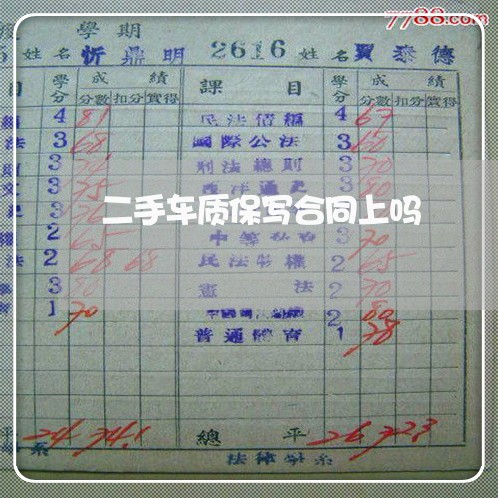 7788.com
學期
姓名 忻鼎明 2616 姓名 賈泰德
目 學分 成績 課目 學分 成績
分數 扣分 實得 分數 扣分 實得
4 81 民法債編 4 67
法 3 68 國際公法 3 60
3 刑法總則 3 70
文 3 75 西洋通史 3 80
3
二手车质保写合同上吗
權 2 65 3 70
法 2 68 68 民法物權 2 65
3 80 憲法 2 70
1 70 2 80
普通體育 1 78
平 24 74.1 總平 26 72.3
系 法律學系